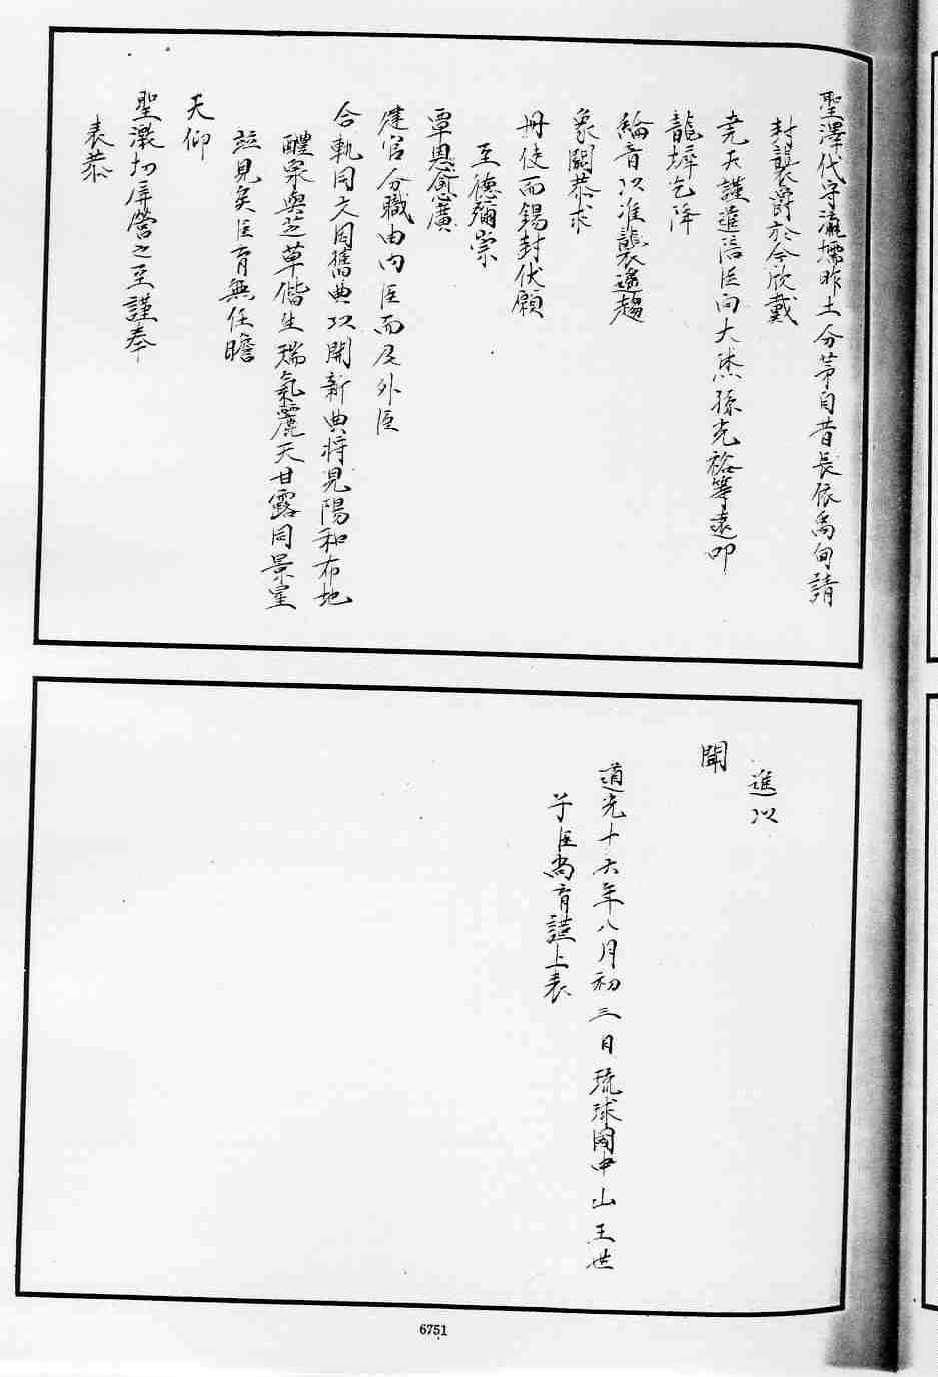 聖澤代守瀛壖昨土分茅自昔長依禹甸請
封襲爵於今欣戴
堯天謹遣陪臣向大烋孫克裕等遠叩
龍墀乞降
綸音以准襲遙趨
象闕恭求
冊使而錫封伏願
至德彌崇
覃恩愈廣
建官分職由內臣而及外臣
合軌同文因舊典以開新典將見陽和布地
醴泉與芝草偕生瑞氣麗天甘露同景星
竝見矣臣育無任瞻
天仰
聖激切屏營之至謹奉
表恭
進以
聞
道光十六年八月初三日琉球國中山王世
子臣尚育謹上表
6751